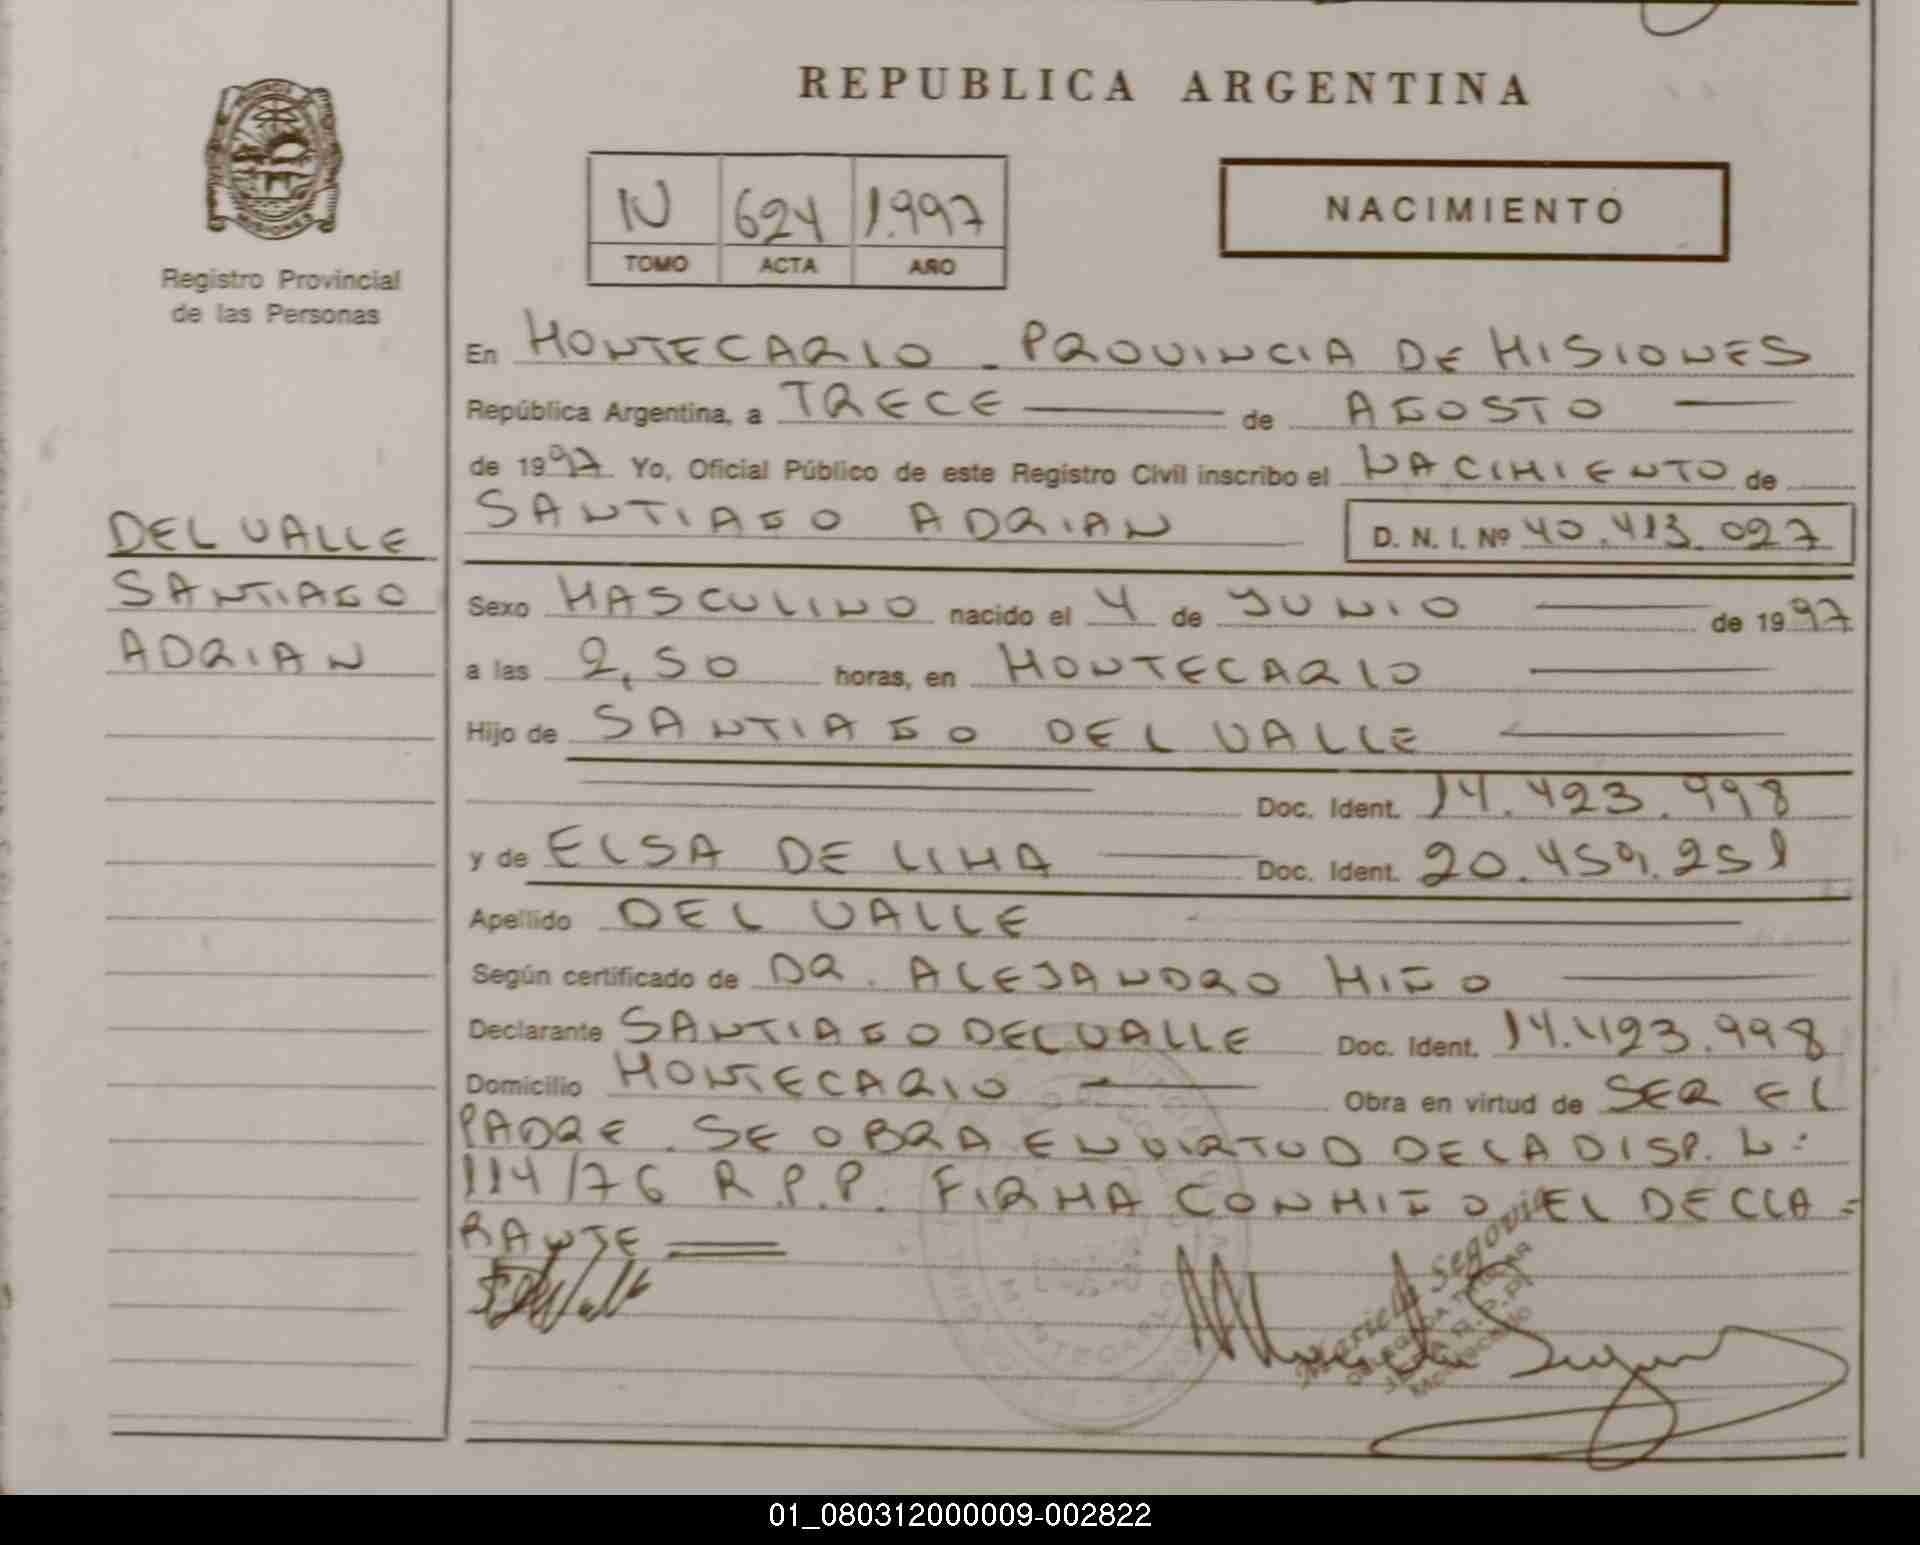 REPUBLICA ARGENTINA
MISIONES
Registro Provincial
de las Personas
IV 624 1.997
TOMO ACTA AÑO
NACIMIENTO
En MONTECARLO - PROVINCIA DE MISIONES
República Argentina, a TRECE de AGOSTO
de 1997 Yo, Oficial Público de este Registro Civil inscribo el NACIMIENTO de
SANTIAGO ADRIAN D. N. I. Nº 40.413.027
DEL VALLE
SANTIAGO
ADRIAN
Sexo MASCULINO nacido el 4 de JUNIO de 1997
a las 2,50 horas, en MONTECARLO
Hijo de SANTIAGO DEL VALLE
Doc. Ident. 14.423.998
y de ELSA DE LIMA Doc. Ident. 20.459.251
Apellido DEL VALLE
Según certificado de DR. ALEJANDRO MIÑO
Declarante SANTIAGO DEL VALLE Doc. Ident. 14.423.998
Domicilio MONTECARLO Obra en virtud de SER EL
PADRE. SE OBRA EN VIRTUD DE LA DISP. N:
114/76 R.P.P. FIRMA CONMIGO EL DECLA=
RANTE
Segovia
01_080312000009-002822